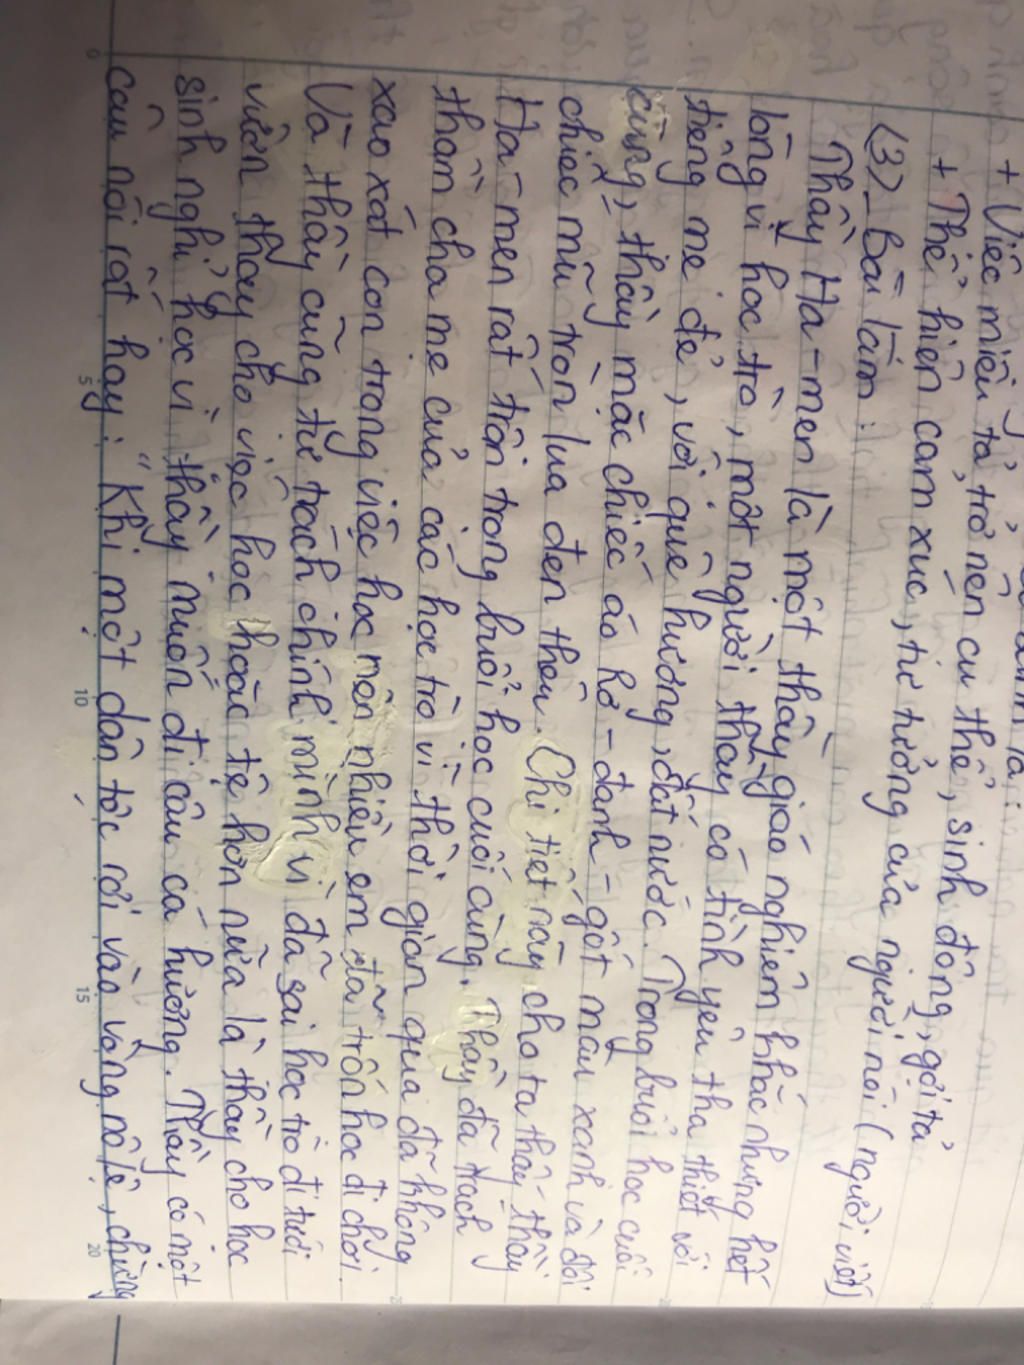 + Việc miêu tả, trở nên cụ thể, sinh động, gợi tả
+ Thể hiện cảm xúc, tư tưởng của người nói (người viết)
(3) Bài làm:
Thầy Ha-men là một thầy giáo nghiêm khắc nhưng hết
lòng vì học trò, một người thầy có tình yêu tha thiết với
tiếng mẹ đẻ, với quê hương, đất nước. Trong buổi học cuối
cùng, thầy mặc chiếc áo hơ-đanh-gốt màu xanh và đội
chiếc mũ tròn lụa đen thêu. Chi tiết này cho ta thấy thầy
Ha-men rất trân trọng buổi học cuối cùng. Thầy đã trách
thầm cha mẹ của các học trò vì thời gian qua đã không
xao xát con trong việc học nên nhiều em đã trốn học đi chơi.
Và thầy cũng tự trách chính mình vì đã sai học trò đi tưới
vườn thay cho việc học hoặc tệ hơn nữa là thầy cho học
sinh nghỉ học vì thầy muốn đi câu cá hương. Thầy có một
câu nói rất hay: "Khi một dân tộc rơi vào vòng nô lệ, chừng